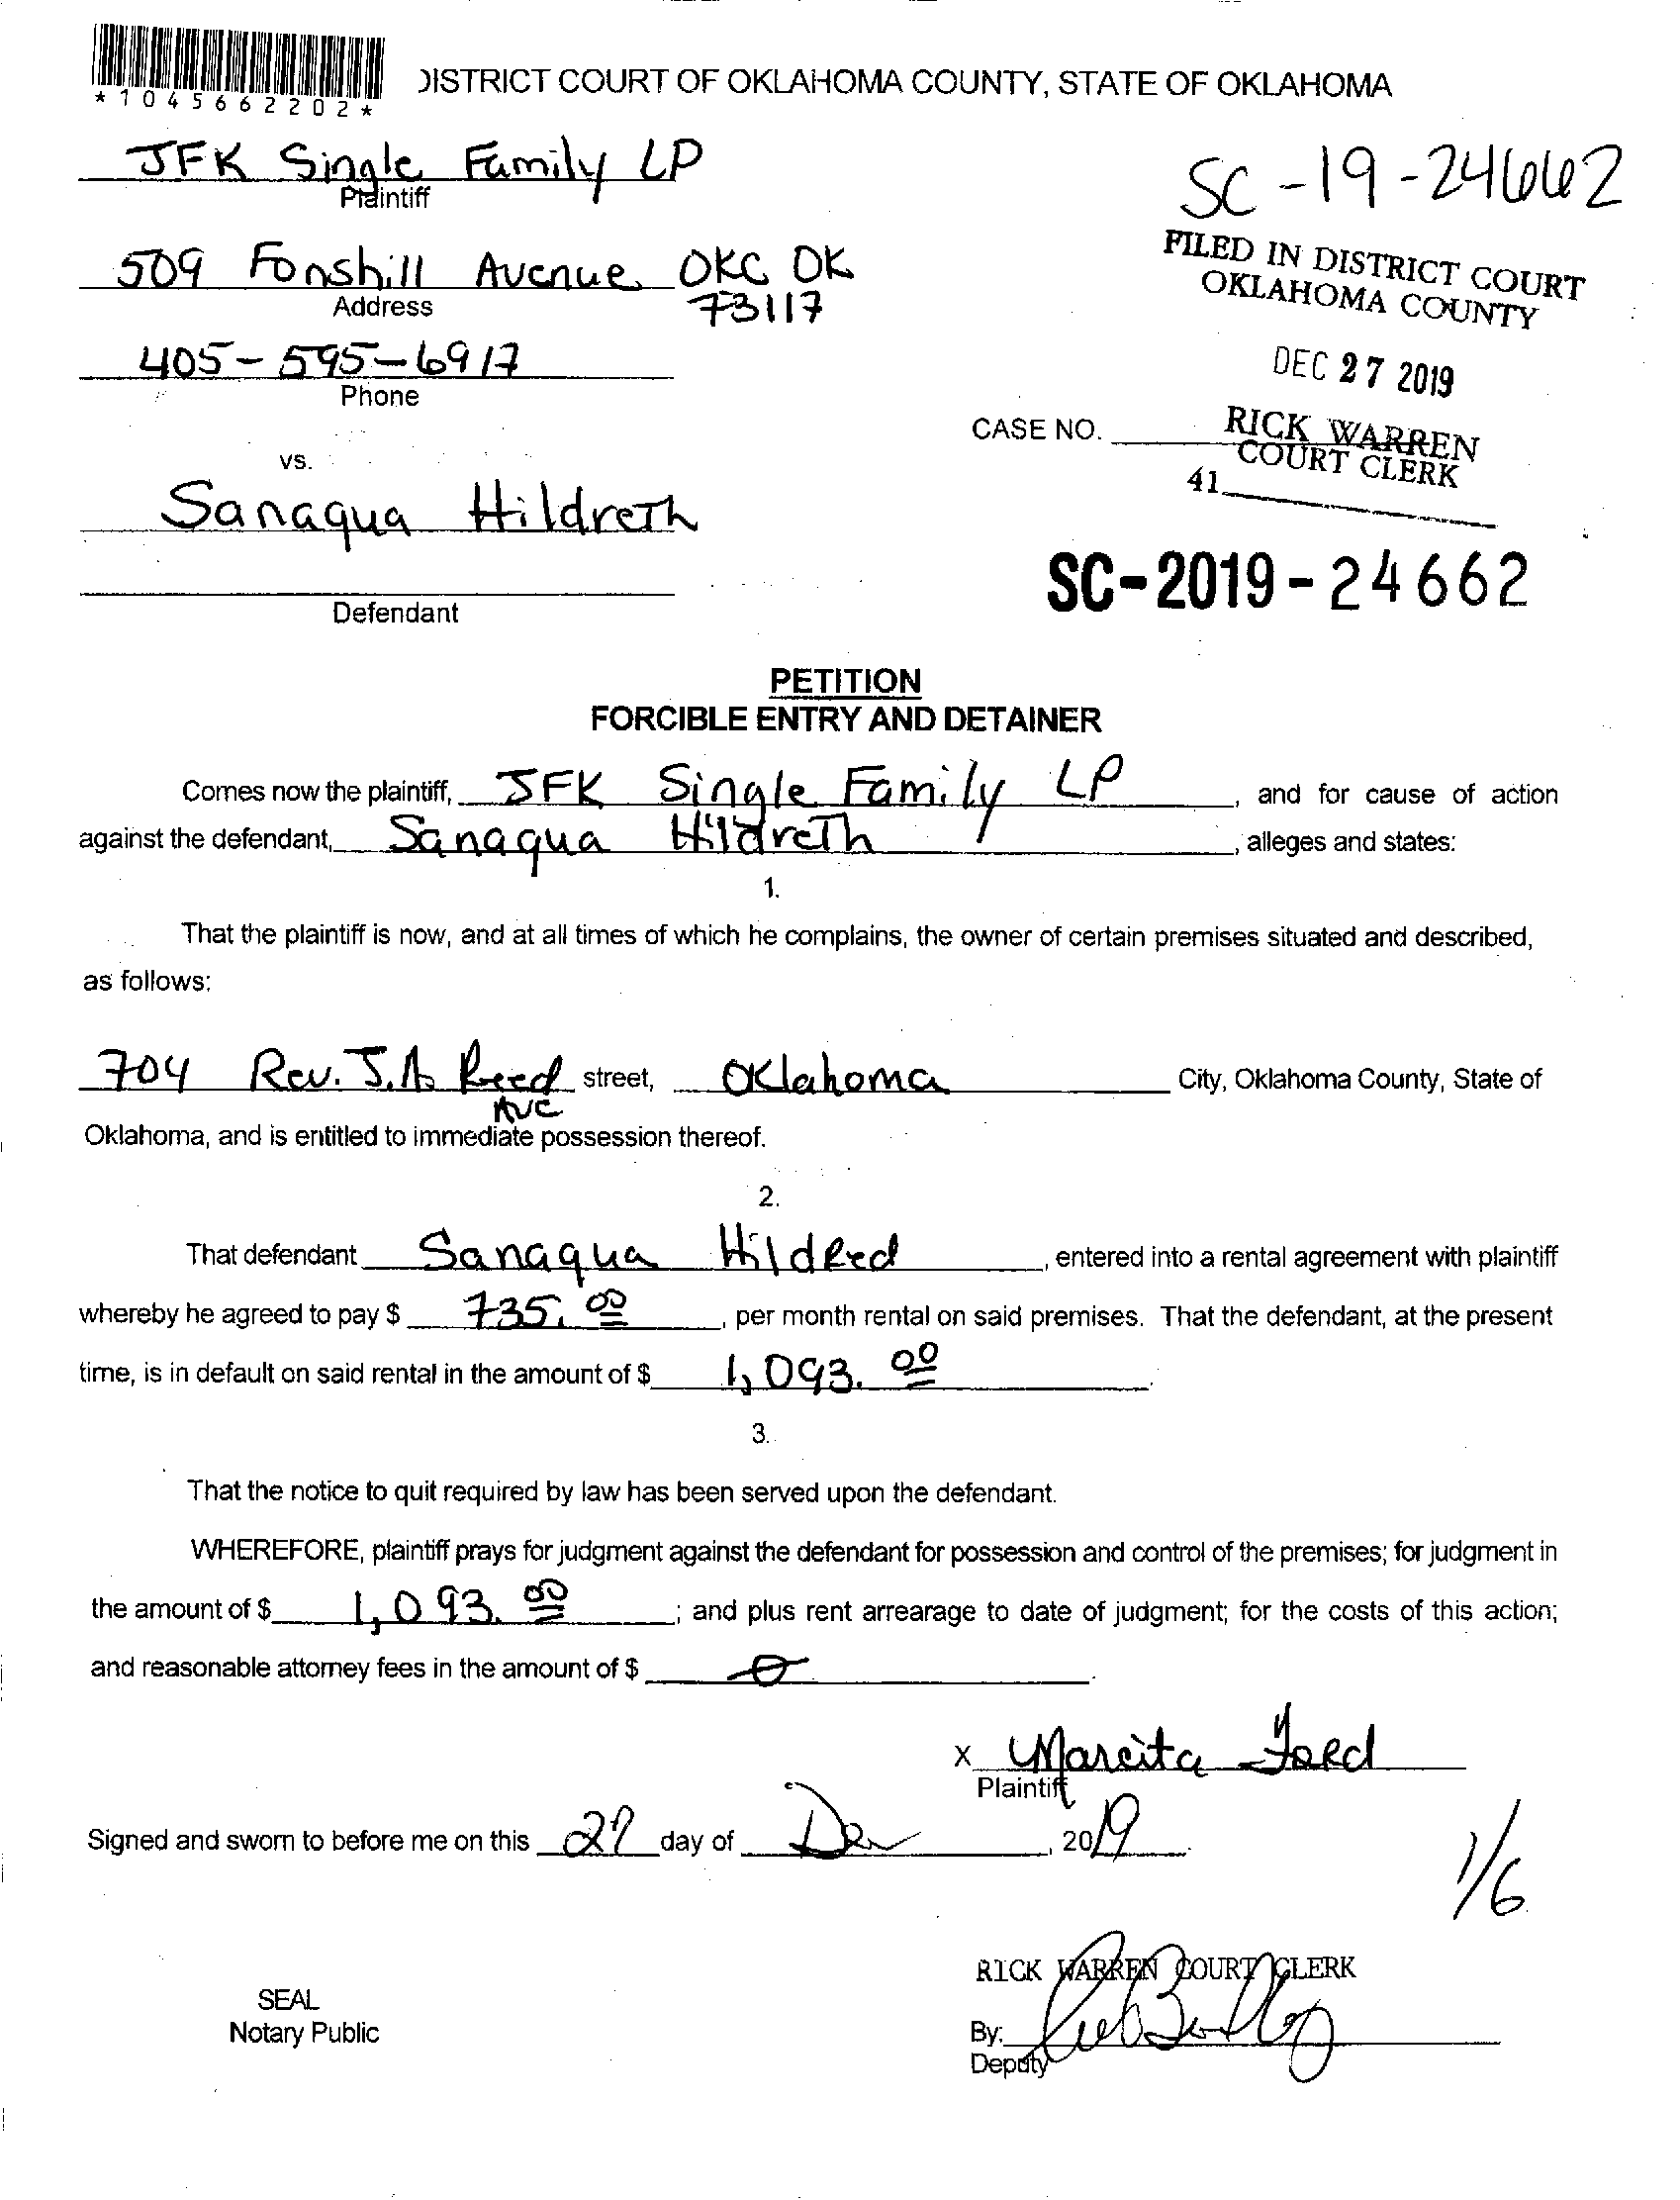 *1045662202*
DISTRICT COURT OF OKLAHOMA COUNTY, STATE OF OKLAHOMA
JFK Single Family LP
Plaintiff
SC-19-24662
509 Fonshill Avenue OKC OK
73117
Address
FILED IN DISTRICT COURT
OKLAHOMA COUNTY
405-595-6917
Phone
DEC 27 2019
CASE NO.
RICK WARREN
COURT CLERK
41
vs.
Sanaqua Hildreth
Defendant
SC-2019-24662
PETITION
FORCIBLE ENTRY AND DETAINER
Comes now the plaintiff, JFK Single Family LP, and for cause of action
against the defendant, Sanaqua Hildreth, alleges and states:
1.
That the plaintiff is now, and at all times of which he complains, the owner of certain premises situated and described,
as follows:
704 Rev. J.A Reed street, Oklahoma City, Oklahoma County, State of
Ave
Oklahoma, and is entitled to immediate possession thereof.
2.
That defendant Sanaqua Hildred, entered into a rental agreement with plaintiff
whereby he agreed to pay $ 735.00, per month rental on said premises. That the defendant, at the present
time, is in default on said rental in the amount of $ 1,093.00.
3.
That the notice to quit required by law has been served upon the defendant.
WHEREFORE, plaintiff prays for judgment against the defendant for possession and control of the premises; for judgment in
the amount of $ 1,093.00; and plus rent arrearage to date of judgment; for the costs of this action;
and reasonable attorney fees in the amount of $ 0.
X Marcita Ford
Plaintiff
Signed and sworn to before me on this 27 day of Dec, 2019.
1/6
RICK WARREN COURT CLERK
SEAL
Notary Public
By:
Deputy